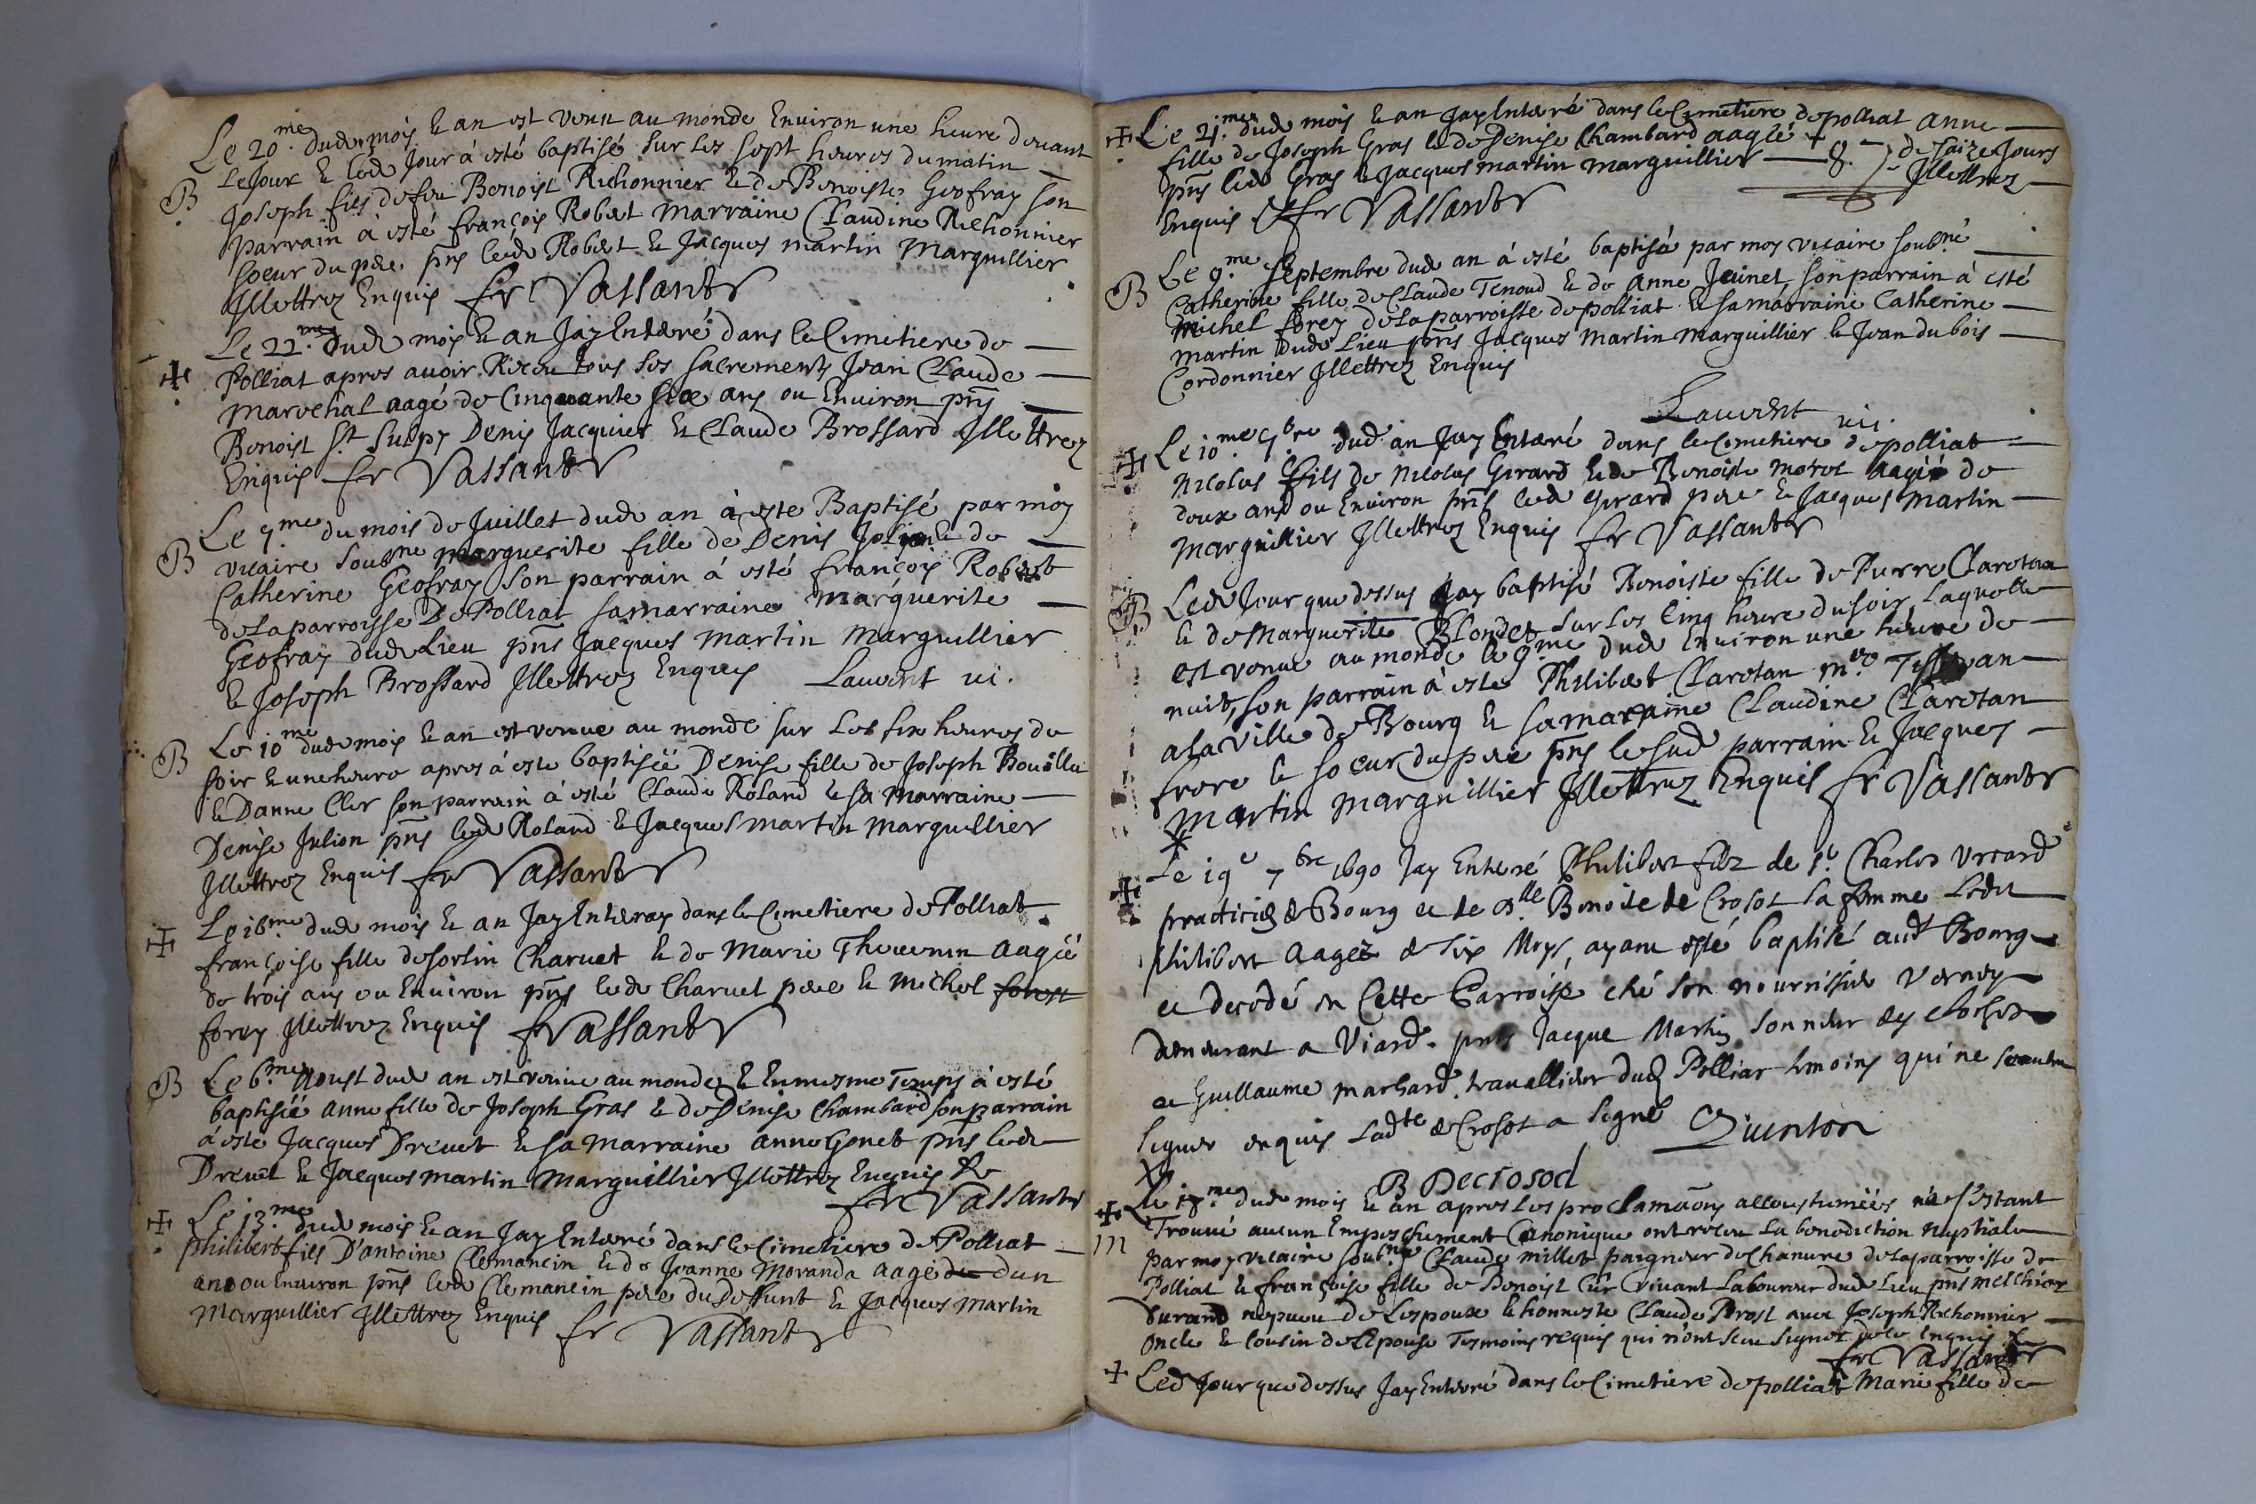 Le 20.me dud mois & an est venu au monde Environ une heure devant
B Le Jour & led Jour à esté baptisé sur les sept heures du matin
Joseph fils de feu Benoist Richonnier & de Benoiste Geofray son
parrain à esté françois Robert marraine Claudine Richonnier
soeur du pere pñs led Robert & Jacques martin Marguillier
Illettrez Enquis fr Vassantr
Le 22.me dud mois & an Jay Enterré dans le Cimetiere de
Polliat apres avoir Receu tous ses sacrements Jean Claude
marechal aagé de Cinquante six ans ou Environ pñs
Benoist St Sulpy Denis Jacquier & Claude Brossard Illettrez
Enquis fr Vassantr
Le 9me du mois de Juillet dud an à esté Baptisé par moy
B vicaire soubne marguerite fille de Denis & de
Catherine Geofray son parrain à esté françois Robert
de la parroisse De Polliat sa marraine marguerite
Geofray dud Lieu pñs Jacques martin Marguillier
& Joseph Brossard Illettrez Enquis Laurent vi.
Le 10me dud mois & an est venue au monde sur les six heures du
B soir & une heure apres à este baptisée Denise fille de Joseph Bouillu
& Danne Cler son parrain à esté Claude Roland & sa Marraine
Denise Julien pñs led Roland & Jacques martin marguillier
Illettrez Enquis fr Vassantr
Le 16me dud mois & an Jay Enterray dans le Cimetiere de Polliat
françoise fille de sorlin Charvet & de Marie Thevenin aagée
de trois ans ou Environ pñs led Charvet pere & michel forest
forey Illettrez Enquis fr Vassantr
B Le 6.me Aoust dud an est venue au monde & En mesme Temps à esté
baptisée anne fille de Joseph Gras & de Denise Chambard son parrain
à esté Jacques Drevet & sa marraine anne Genet pñs led
Drevet & Jacques martin marguillier Illettrez Enquis
fr Vassantr
Le 13.me dud mois & an Jay Enterré dans le Cimetiere de Polliat
philibert fils D'antoine Clemancin & de Jeanne Moranda aagé de dun
ans ou Environ pñs led Clemancin pere du Deffunt & Jacques Martin
Marguillier Illettrez Enquis
fr Vassantr
Le 21.me dud mois & an Jay Enterré dans le Cimetiere de polliat anne
fille de Joseph Gras & de Denise Chambard aagée + de saize Jours
pñs led Gras & Jacques martin marguillier Illettrez
Enquis fr Vassantr
Le 9.me Septembre dud an à esté baptisée par moy vicaire soubné
B Catherine fille de Claude Tenoud & de anne Jeinet, son parrain à esté
michel forey de la parroisse de polliat & sa marraine Catherine
martin dud Lieu pñs Jacques martin marguillier & Jean dubois
Cordonnier Illettrez Enquis
Laurent vi.
Le 10.me 7bre dud an Jay Enterré dans le Cimetiere de polliat
nicolas fils de nicolas Girard & de Benoiste morel aagé de
deux ans ou Environ pñs led Girard pere & Jacques martin
marguillier Illettrez Enquis fr Vassantr
B Led Jour que dessus Jay baptisé Benoiste fille de Pierre Claretan
& de marguerite Blondet sur les Cinq heure du soir, Laquelle
est venue au monde le 9me dud Environ une heure de
nuit, son parrain à esté Philibert Claretan mre
a la ville de Bourg & sa maraine Claudine Claretan
frere & soeur du pere pñs le sud parrain & Jacques
martin marguillier Illettrez Enquis fr Vassantr
Le 19e 7bre 1690 Jay Enteré Philibert filz de Sr Charles Uccard
practicien de Bourg et de Dlle Benoite de Crosot sa femme Ledit
philibert aagez de six Moys, ayant esté baptisé audt Bourg
et decedé en Cette Parroisse ché son nourrissier Verney
demeurant a Viard. pnts Jacque Martin sonneur des cloches
et Guillaume marhard travallieur dud Polliat temoins qui ne
signer enquis Ladte de Crosot a signé Quinton
B Decrosod
Le 18.me dud mois & an apres les proclamãons accoustumées ne s'estant
m Trouvé aucun Empeschement Canonique ont receu La benediction nuptiale
par moy vicaire soubné Claude millet paigneur de chanvre de la parroisse de
Polliat & françoise fille de Benoist Cur vivant Laboureur dud Lieu pñs melchior
Durand nepveu de Lespoux & honneste Claude Prost avec Joseph Richonnier
oncle & cousin de L'epouse Tesmoins requis qui n'ont sceu signer de ce enquis
fr Vassantr
Led Jour que dessus Jay Enterré dans le Cimetiere de polliat Marie fille de